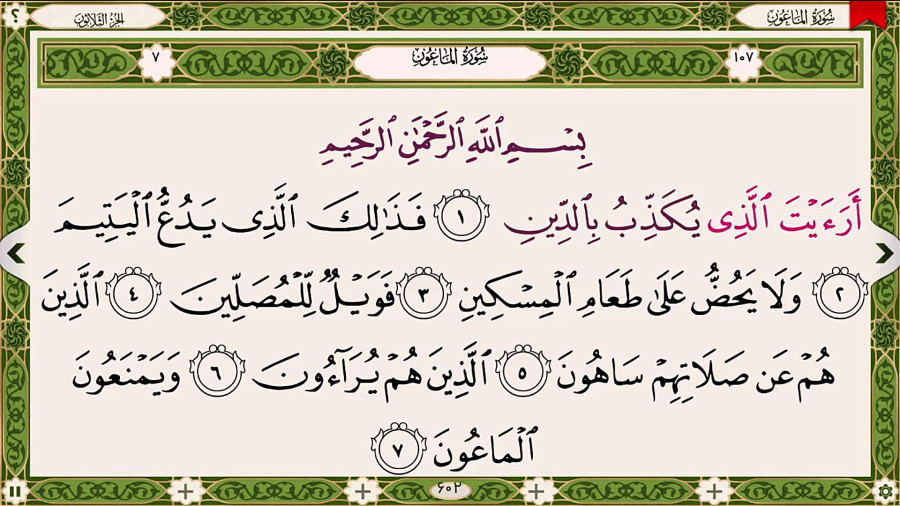 سُورَةُ المَاعُون
الجُزْءُ الثَّلَاثُونَ
؟
١٠٧
سُورَةُ المَاعُون
٧
بِسْمِ ٱللَّهِ ٱلرَّحْمَٰنِ ٱلرَّحِيمِ
أَرَءَيْتَ ٱلَّذِى يُكَذِّبُ بِٱلدِّينِ ١ فَذَٰلِكَ ٱلَّذِى يَدُعُّ ٱلْيَتِيمَ
٢ وَلَا يَحُضُّ عَلَىٰ طَعَامِ ٱلْمِسْكِينِ ٣ فَوَيْلٌ لِّلْمُصَلِّينَ ٤ ٱلَّذِينَ
هُمْ عَن صَلَاتِهِمْ سَاهُونَ ٥ ٱلَّذِينَ هُمْ يُرَآءُونَ ٦ وَيَمْنَعُونَ
ٱلْمَاعُونَ ٧
٦٠٢